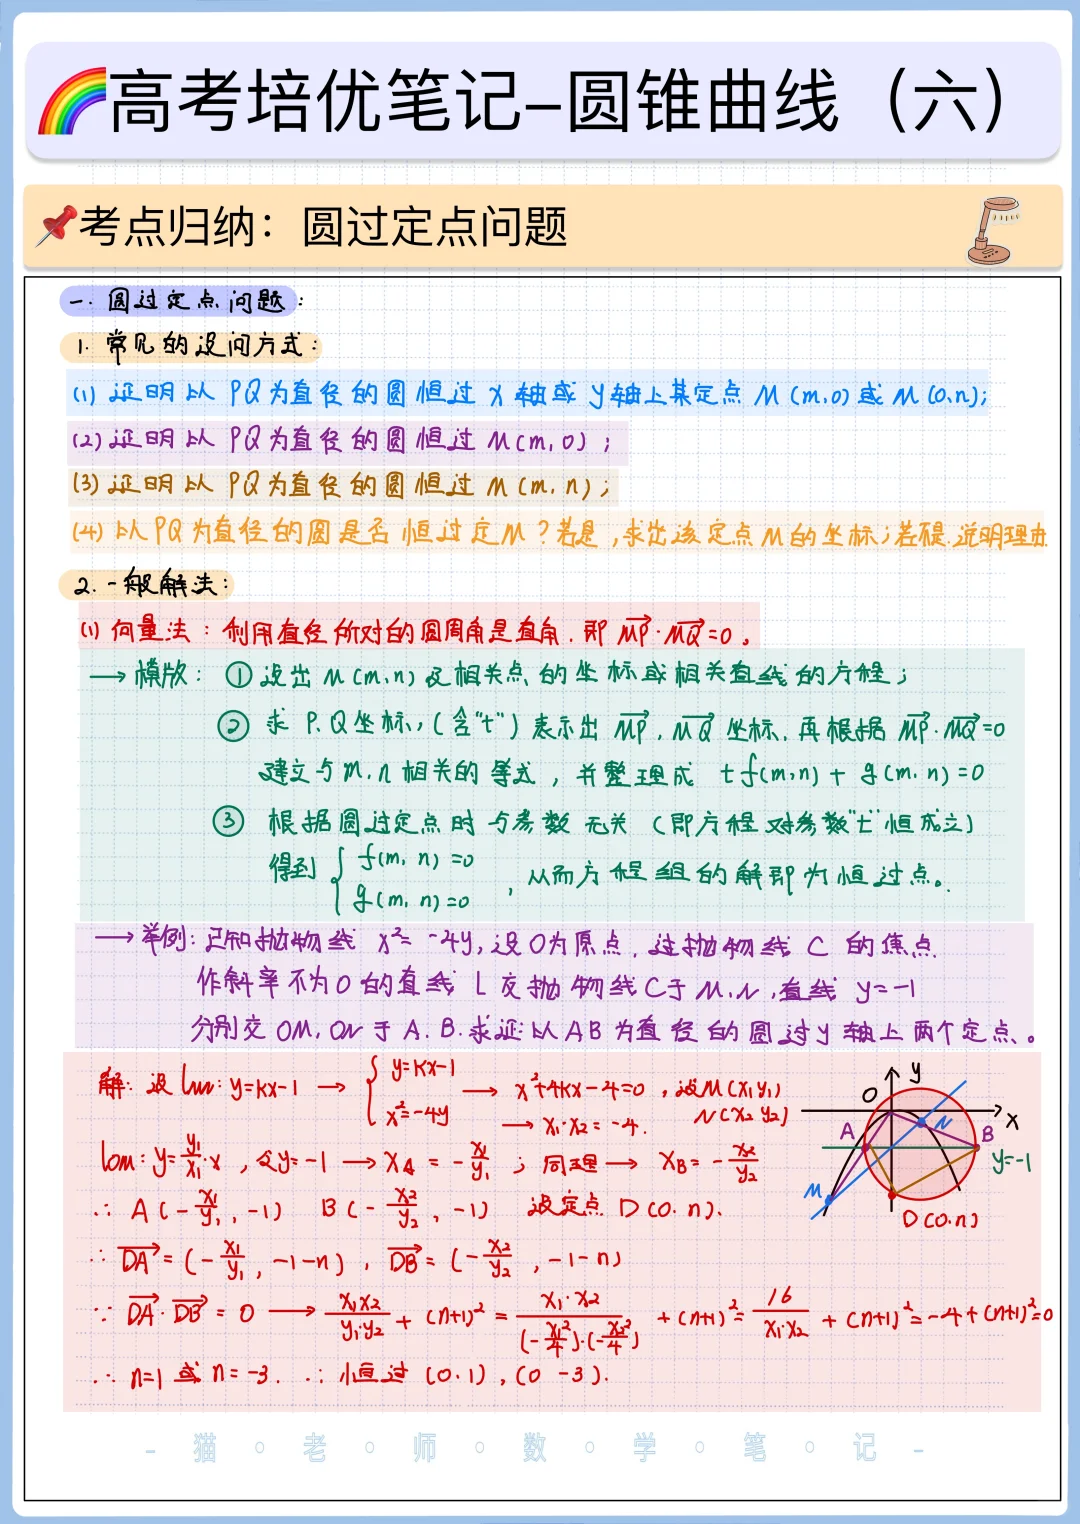 高考培优笔记–圆锥曲线（六）
考点归纳：圆过定点问题
一. 圆过定点问题：
1. 常见的设问方式：
(1) 证明以 PQ为直径的圆恒过 x 轴或 y轴上某定点 M (m,0) 或 M (0,n);
(2) 证明以 PQ为直径的圆恒过 M(m, 0) ;
(3) 证明以 PQ为直径的圆恒过 M (m, n) ;
(4) 以PQ为直径的圆是否恒过定M？若是,求出该定点M的坐标;若不是.说明理由
2. 一般解法：
(1) 向量法：利用直径所对的圆周角是直角.即 $\overrightarrow{MP}\cdot\overrightarrow{MQ}=0$。
→ 模版： ① 设出 M (m,n) 及相关点的坐标或相关直线的方程；
② 求 P.Q坐标,(含"t") 表示出 $\overrightarrow{MP}$, $\overrightarrow{MQ}$ 坐标.再根据 $\overrightarrow{MP}\cdot\overrightarrow{MQ}=0$
建立与m.n相关的等式，并整理成 t f(m,n) + g(m,n)=0
③ 根据圆过定点时与参数无关 (即方程对参数"t"恒成立)
得到 $\begin{cases} f(m,n)=0 \\ g(m,n)=0 \end{cases}$，从而方程组的解即为恒过点。
→ 举例：已知抛物线 x²= -4y, 设O为原点，过抛物线 C 的焦点
作斜率不为0的直线 l 交抛物线C于 M.N ,直线 y=-1
分别交 OM, ON 于 A. B. 求证:以AB为直径的圆过y轴上两个定点.。
解：设 lMN: y=kx-1 → $\begin{cases} y=kx-1 \\ x²=-4y \end{cases}$ → x²+4kx-4=0 , 设M(x₁y₁) N(x₂ y₂)
→ x₁·x₂ = -4.
lOM: y=$\frac{y_1}{x_1}$·x , 令y=-1 → x_A = -$\frac{x_1}{y_1}$ ; 同理 → x_B = -$\frac{x_2}{y_2}$
∴ A (-$\frac{x_1}{y_1}$, -1) B (-$\frac{x_2}{y_2}$, -1) 设定点 D(0. n).
∴ $\overrightarrow{DA}$ = (-$\frac{x_1}{y_1}$, -1-n) , $\overrightarrow{DB}$ = (-$\frac{x_2}{y_2}$, -1-n)
∵ $\overrightarrow{DA}\cdot\overrightarrow{DB}$ = 0 → $\frac{x_1x_2}{y_1\cdot y_2}$ + (n+1)² = $\frac{x_1\cdot x_2}{(-\frac{x_1^2}{4})\cdot(-\frac{x_2^2}{4})}$ + (n+1)² = $\frac{16}{x_1\cdot x_2}$ + (n+1)² = -4+(n+1)²=0
∴ n=1 或 n=-3. ∴ 恒过 (0.1) , (0 -3).
O y
x
A N B
y=-1
M
D(0.n)
- 猫 · 老 · 师 · 数 · 学 · 笔 · 记 -